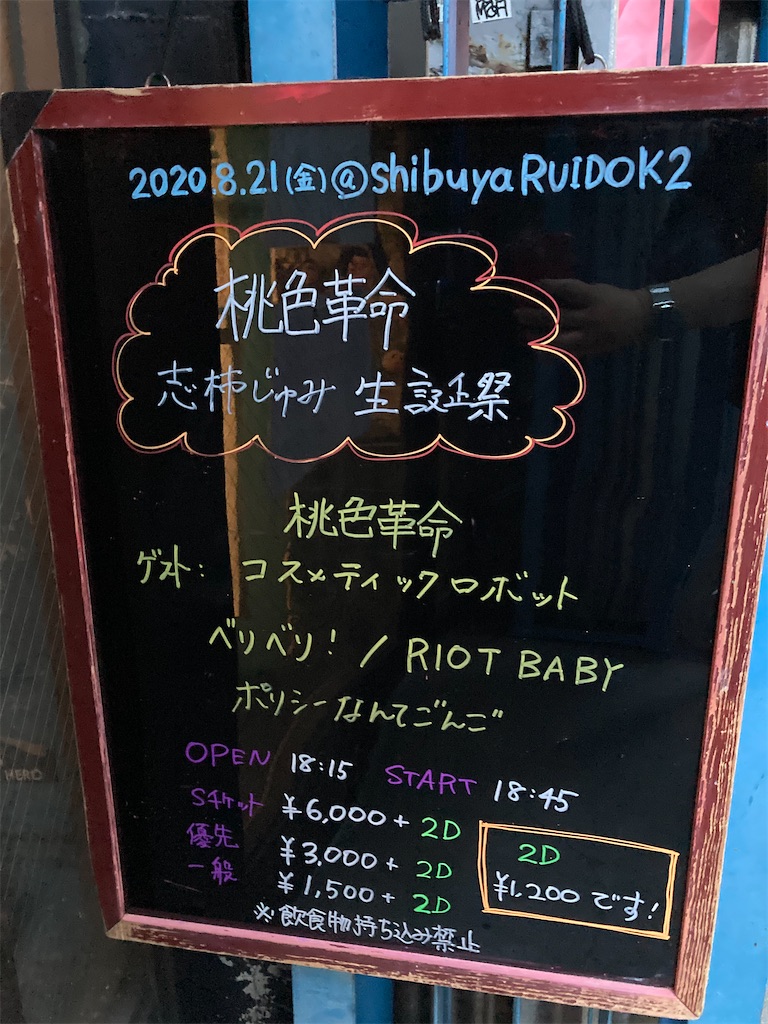 2020.8.21(金)@shibuyaRUIDOK2
桃色革命
志柿じゅみ 生誕祭
桃色革命
ゲスト: コスメティックロボット
ベリベリ! / RIOT BABY
ポリシーなんてごんご
OPEN 18:15 START 18:45
Sチケット ¥6,000+2D
優先 ¥3,000+2D
一般 ¥1,500+2D
2D
¥1,200です!
※飲食物持ち込み禁止
HERO